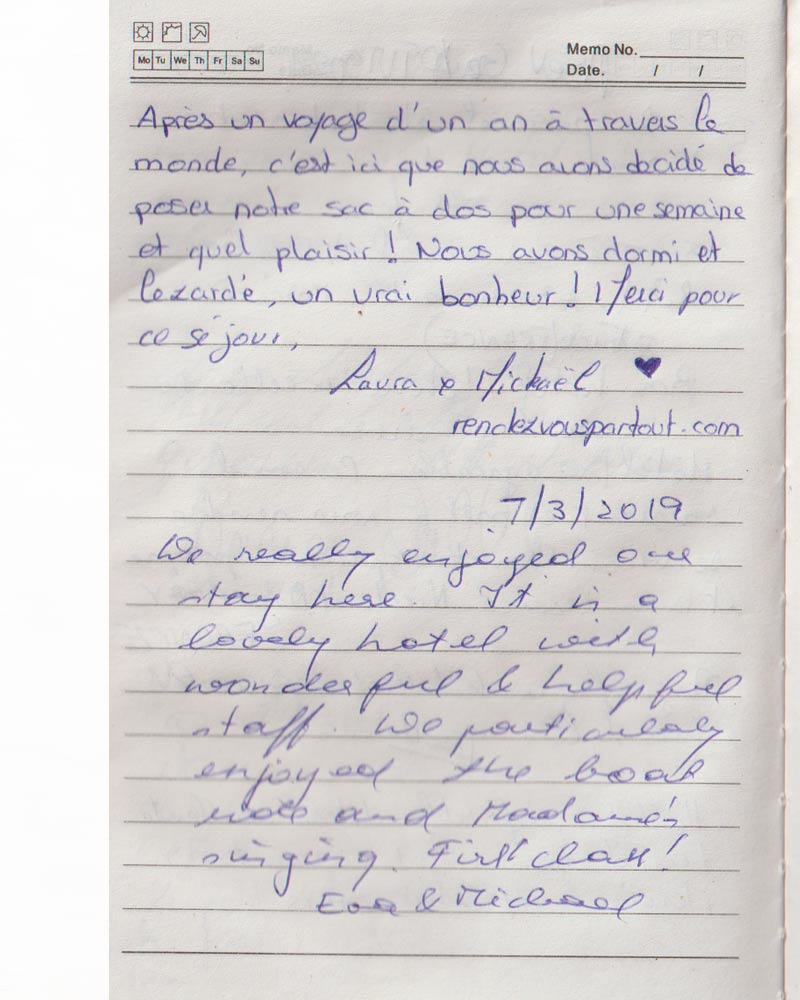 Mo Tu We Th Fr Sa Su
Memo No.
Date. / /
Après un voyage d'un an à travers le
monde, c'est ici que nous avons décidé de
poser notre sac à dos pour une semaine
et quel plaisir ! Nous avons dormi et
lezardé, un vrai bonheur ! Merci pour
ce séjour,
Laura & Mickaël ♥
rendezvouspartout.com
7/3/2019
We really enjoyed our
stay here. It is a
lovely hotel with
wonderful & helpful
staff. We particularly
enjoyed the boat
ride and Madame's
singing. First class!
Eva & Michael